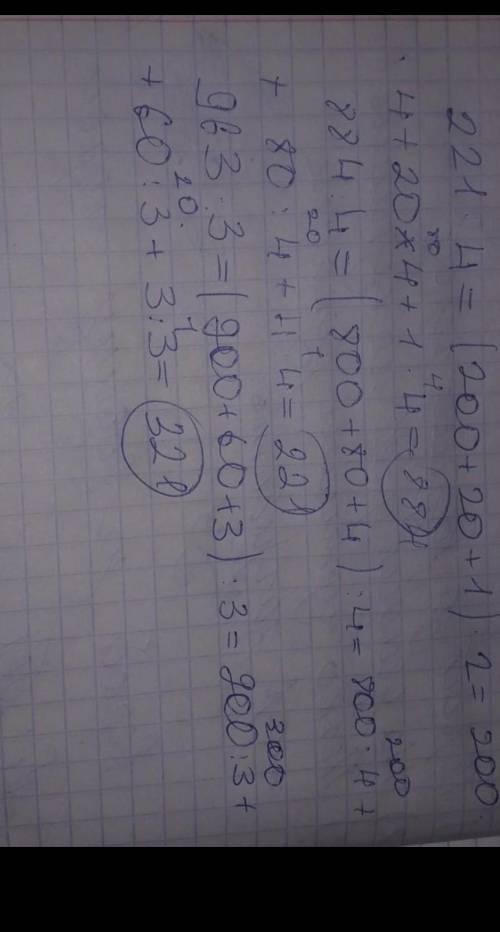 221 · 4 = (200 + 20 + 1) · 2 = 200 ·
80 4
· 4 + 20 × 4 + 1 · 4 = 884
200
884 : 4 = (800 + 80 + 4) : 4 = 800 : 4 +
20 1
+ 80 : 4 + 4 : 4 = 221
300
963 : 3 = (900 + 60 + 3) : 3 = 900 : 3 +
20 1
+ 60 : 3 + 3 : 3 = 321